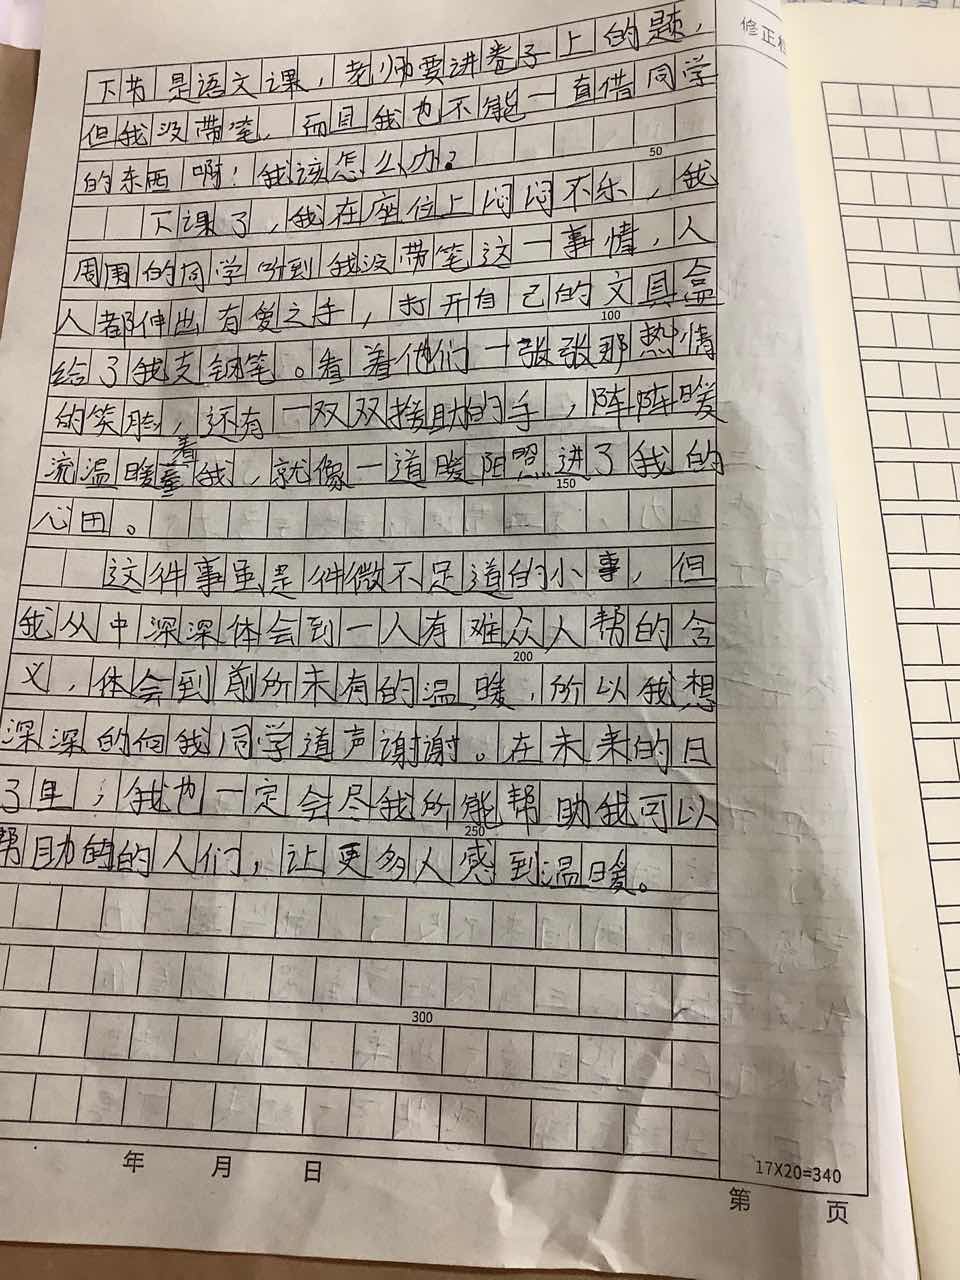 修正
下节是语文课，老师要讲卷子上的题，
但我没带笔，而且我也不能一直借同学
的东西啊！我该怎么办？
50
下课了，我在座位上闷闷不乐，我
周围的同学听到我没带笔这一事情，人
人都伸出有爱之手，打开自己的文具盒
100
给了我支钢笔。看着他们一张张那热情
的笑脸，还有一双双援助的手，阵阵暖
流温暖着我，就像一道暖阳照进了我的
150
心田。
这件事虽是件微不足道的小事，但
我从中深深体会到一人有难众人帮的含
200
义，体会到前所未有的温暖，所以我想
深深的向我同学道声谢谢。在未来的日
子里，我也一定会尽我所能帮助我可以
250
帮助的的人们，让更多人感到温暖。
300
年 月 日
17X20=340
第 页